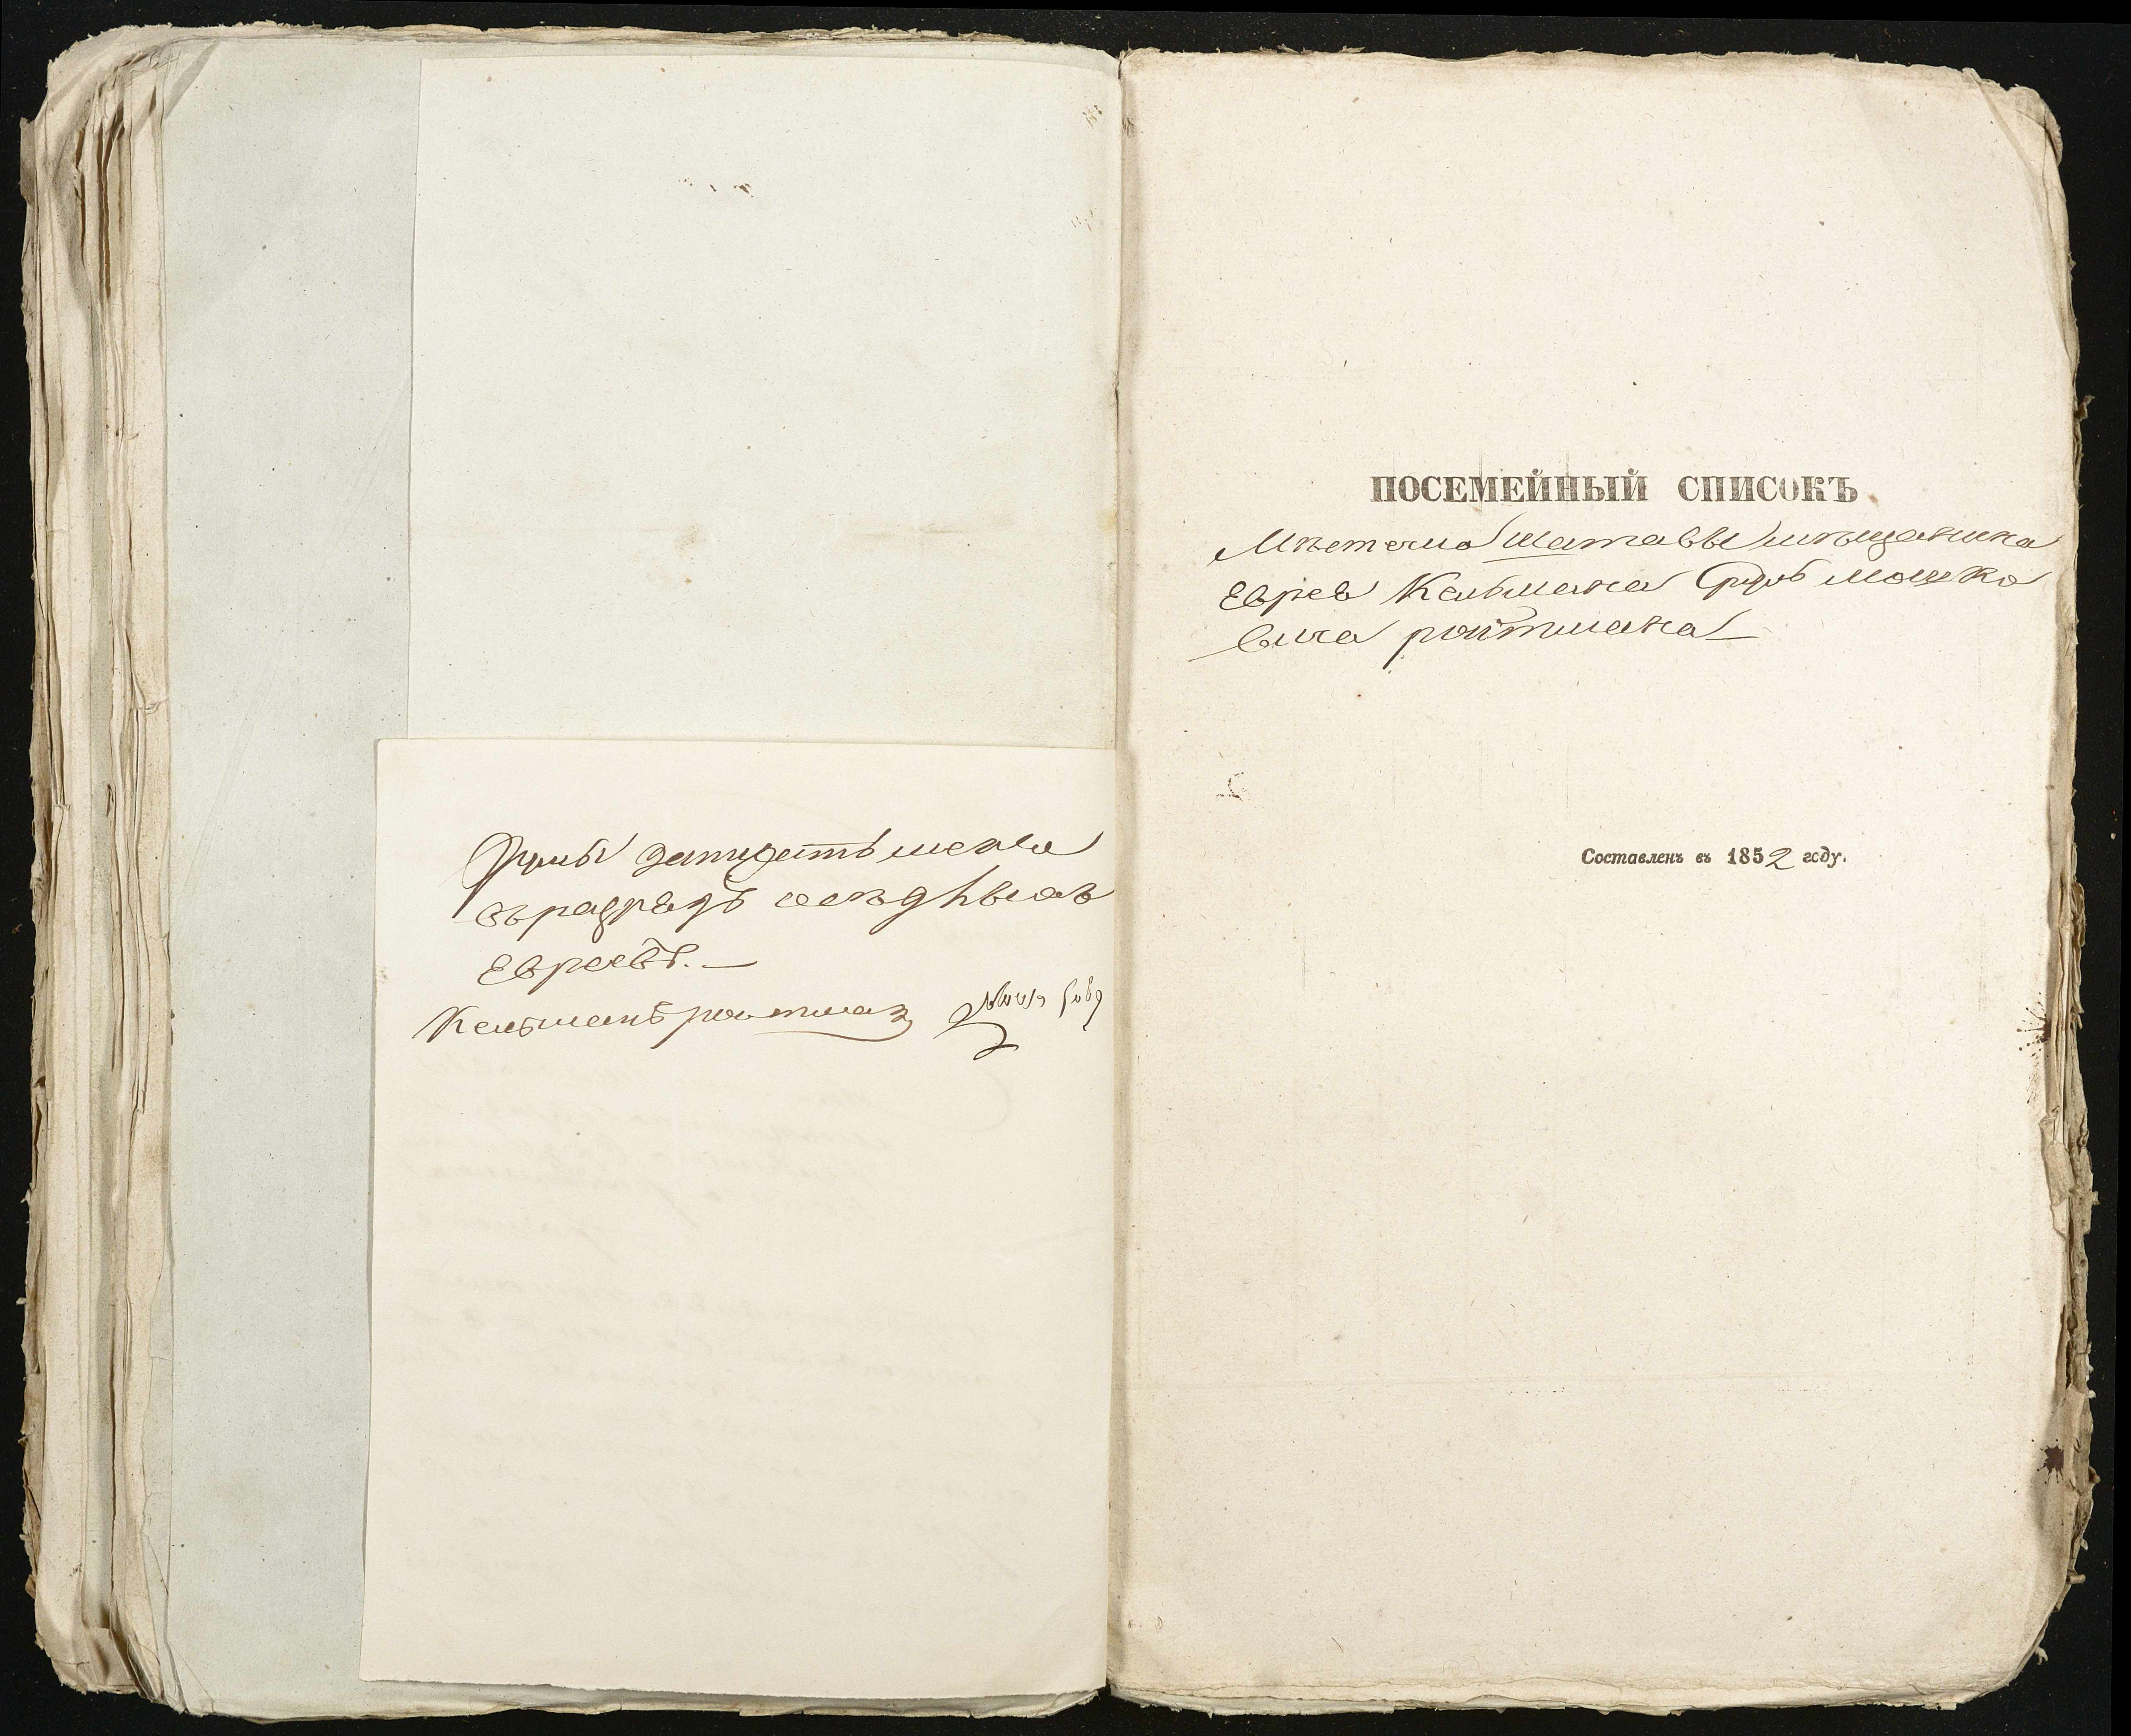 Прошу записать меня
въ разрядъ осѣдлыхъ
Евреевъ. —
Кельманъ ройтман
ПОСЕМЕЙНЫЙ СПИСОКЪ
Мѣстечка Шатавы мѣщанина
Еврея Кельмана Мошко
вича ройтмана
Составленъ въ 1852 году.